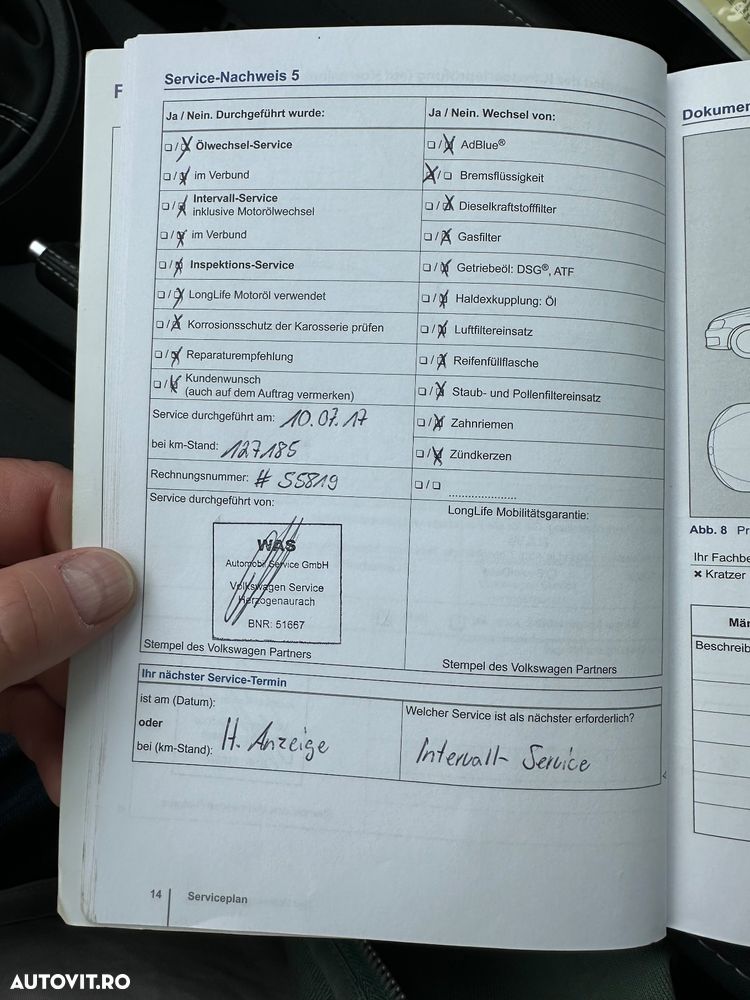 Service-Nachweis 5
Ja / Nein. Durchgeführt wurde:
☐/☒ Ölwechsel-Service
☐/☒ im Verbund
☐/☒ Intervall-Service
inklusive Motorölwechsel
☐/☒ im Verbund
☐/☒ Inspektions-Service
☐/☒ LongLife Motoröl verwendet
☐/☒ Korrosionsschutz der Karosserie prüfen
☐/☒ Reparaturempfehlung
☐/☒ Kundenwunsch
(auch auf dem Auftrag vermerken)
Service durchgeführt am: 10.07.17
bei km-Stand: 127185
Rechnungsnummer: # 55819
Service durchgeführt von:
WAS
Automobil Service GmbH
Volkswagen Service
Herzogenaurach
BNR: 51667
Stempel des Volkswagen Partners
Ja / Nein. Wechsel von:
☐/☒ AdBlue®
☒/☐ Bremsflüssigkeit
☐/☒ Dieselkraftstofffilter
☐/☒ Gasfilter
☐/☒ Getriebeöl: DSG®, ATF
☐/☒ Haldexkupplung: Öl
☐/☒ Luftfiltereinsatz
☐/☒ Reifenfüllflasche
☐/☒ Staub- und Pollenfiltereinsatz
☐/☒ Zahnriemen
☐/☒ Zündkerzen
☐/☐ ......................
LongLife Mobilitätsgarantie:
Stempel des Volkswagen Partners
Ihr nächster Service-Termin
ist am (Datum):
oder
bei (km-Stand): H. Anzeige
Welcher Service ist als nächster erforderlich?
Intervall-Service
14 Serviceplan
Dokumen
Abb. 8 Pr
Ihr Fachbe
✖ Kratzer
Män
Beschreib
F
AUTOVIT.RO